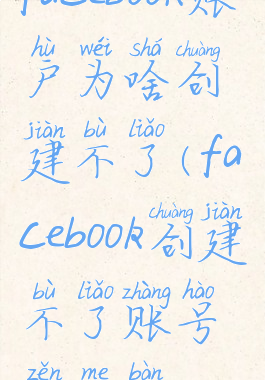 facebook账
hù wéi shá chuàng
户为啥创
jiàn bù liǎo
建不了(fa
chuàng jiàn
cebook创建
bù liǎo zhàng hào
不了账号
zěn me bàn